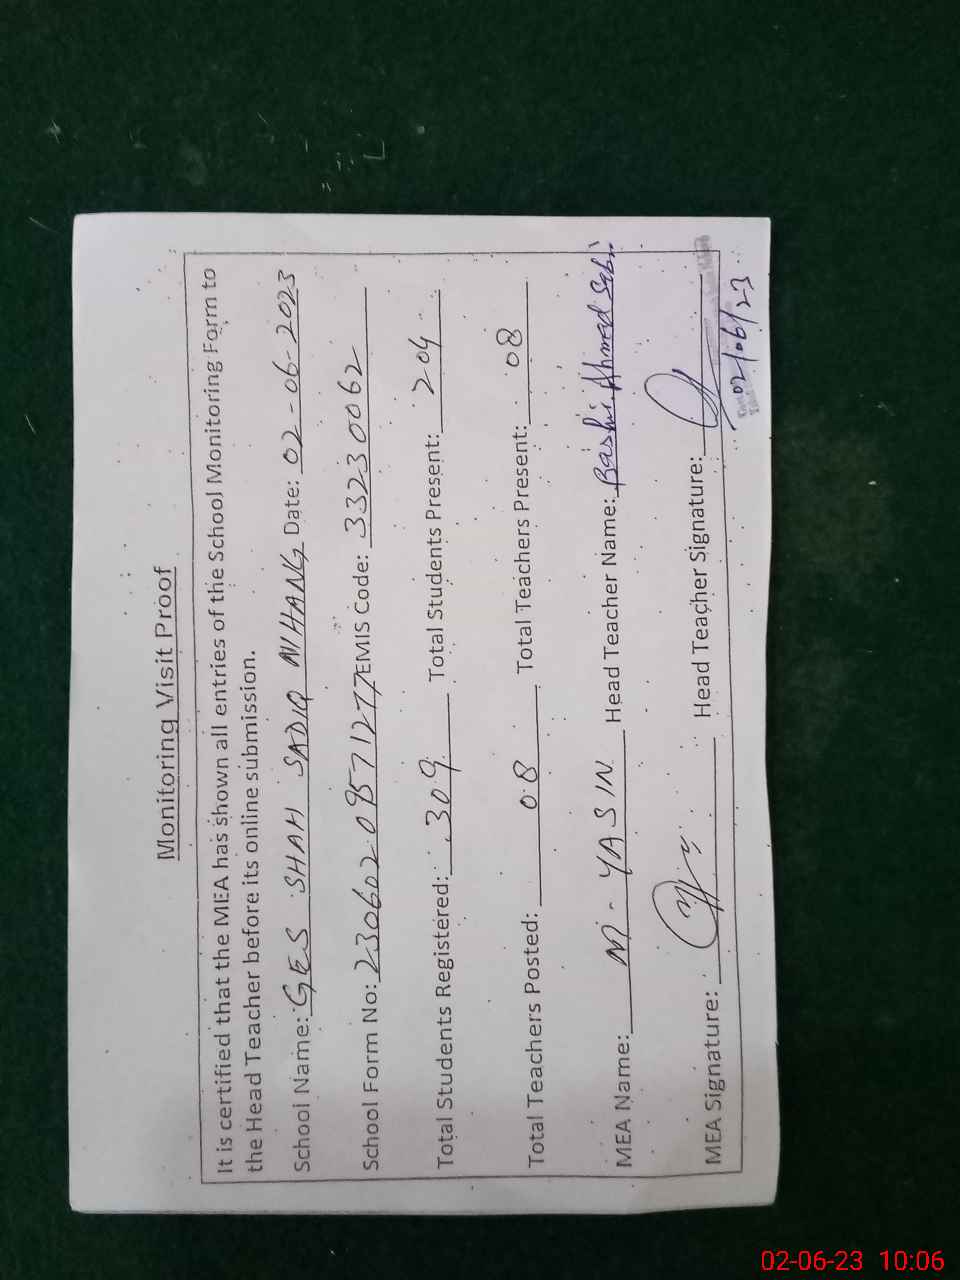 Monitoring Visit Proof
It is certified that the MEA has shown all entries of the School Monitoring Form to
the Head Teacher before its online submission.
School Name: GES SHAH SADIQ NIHANG Date: 02-06-2023
School Form No: 23060209571277 EMIS Code: 33230062
Total Students Registered: 309 Total Students Present: 204
Total Teachers Posted: 08 Total Teachers Present: 08
MEA Name: M. YASIN Head Teacher Name: Bashir Ahmed
MEA Signature: Head Teacher Signature:
02/06/23
02-06-23 10:06